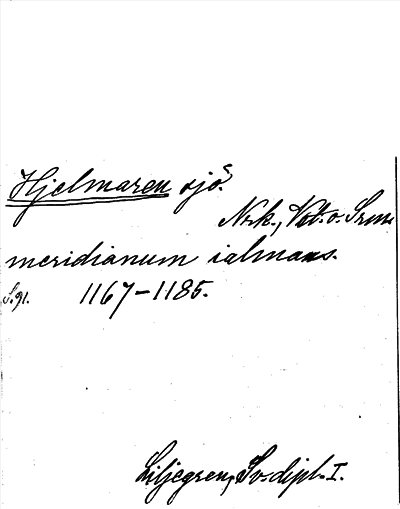 Hjelmaren sjö.
Nrk., Vst. o. Srm.
meridianum ialmans.
S. 91. 1167–1185.
Liljegren, Sv. dipl. I.